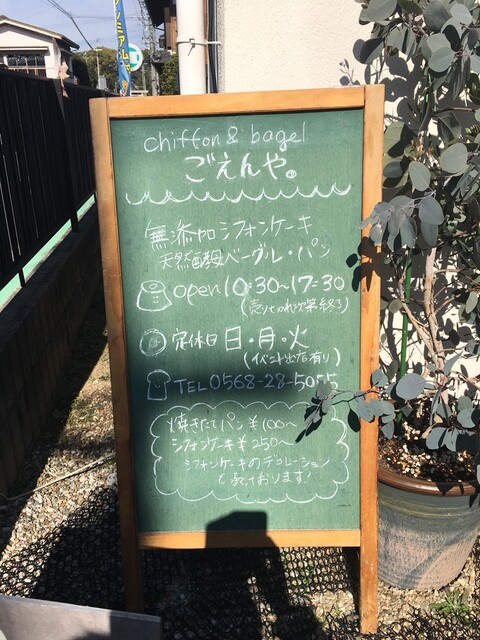 chiffon & bagel
ごえんや。
無添加シフォンケーキ
天然酵母ベーグル・パン
open 10:30~17:30
(売り切れ次第終了)
定休日 日・月・火
(イベント出店有り)
TEL 0568-28-5055
焼きたてパン ¥100~
シフォンケーキ ¥250~
シフォンケーキのデコレーション
も承っております!